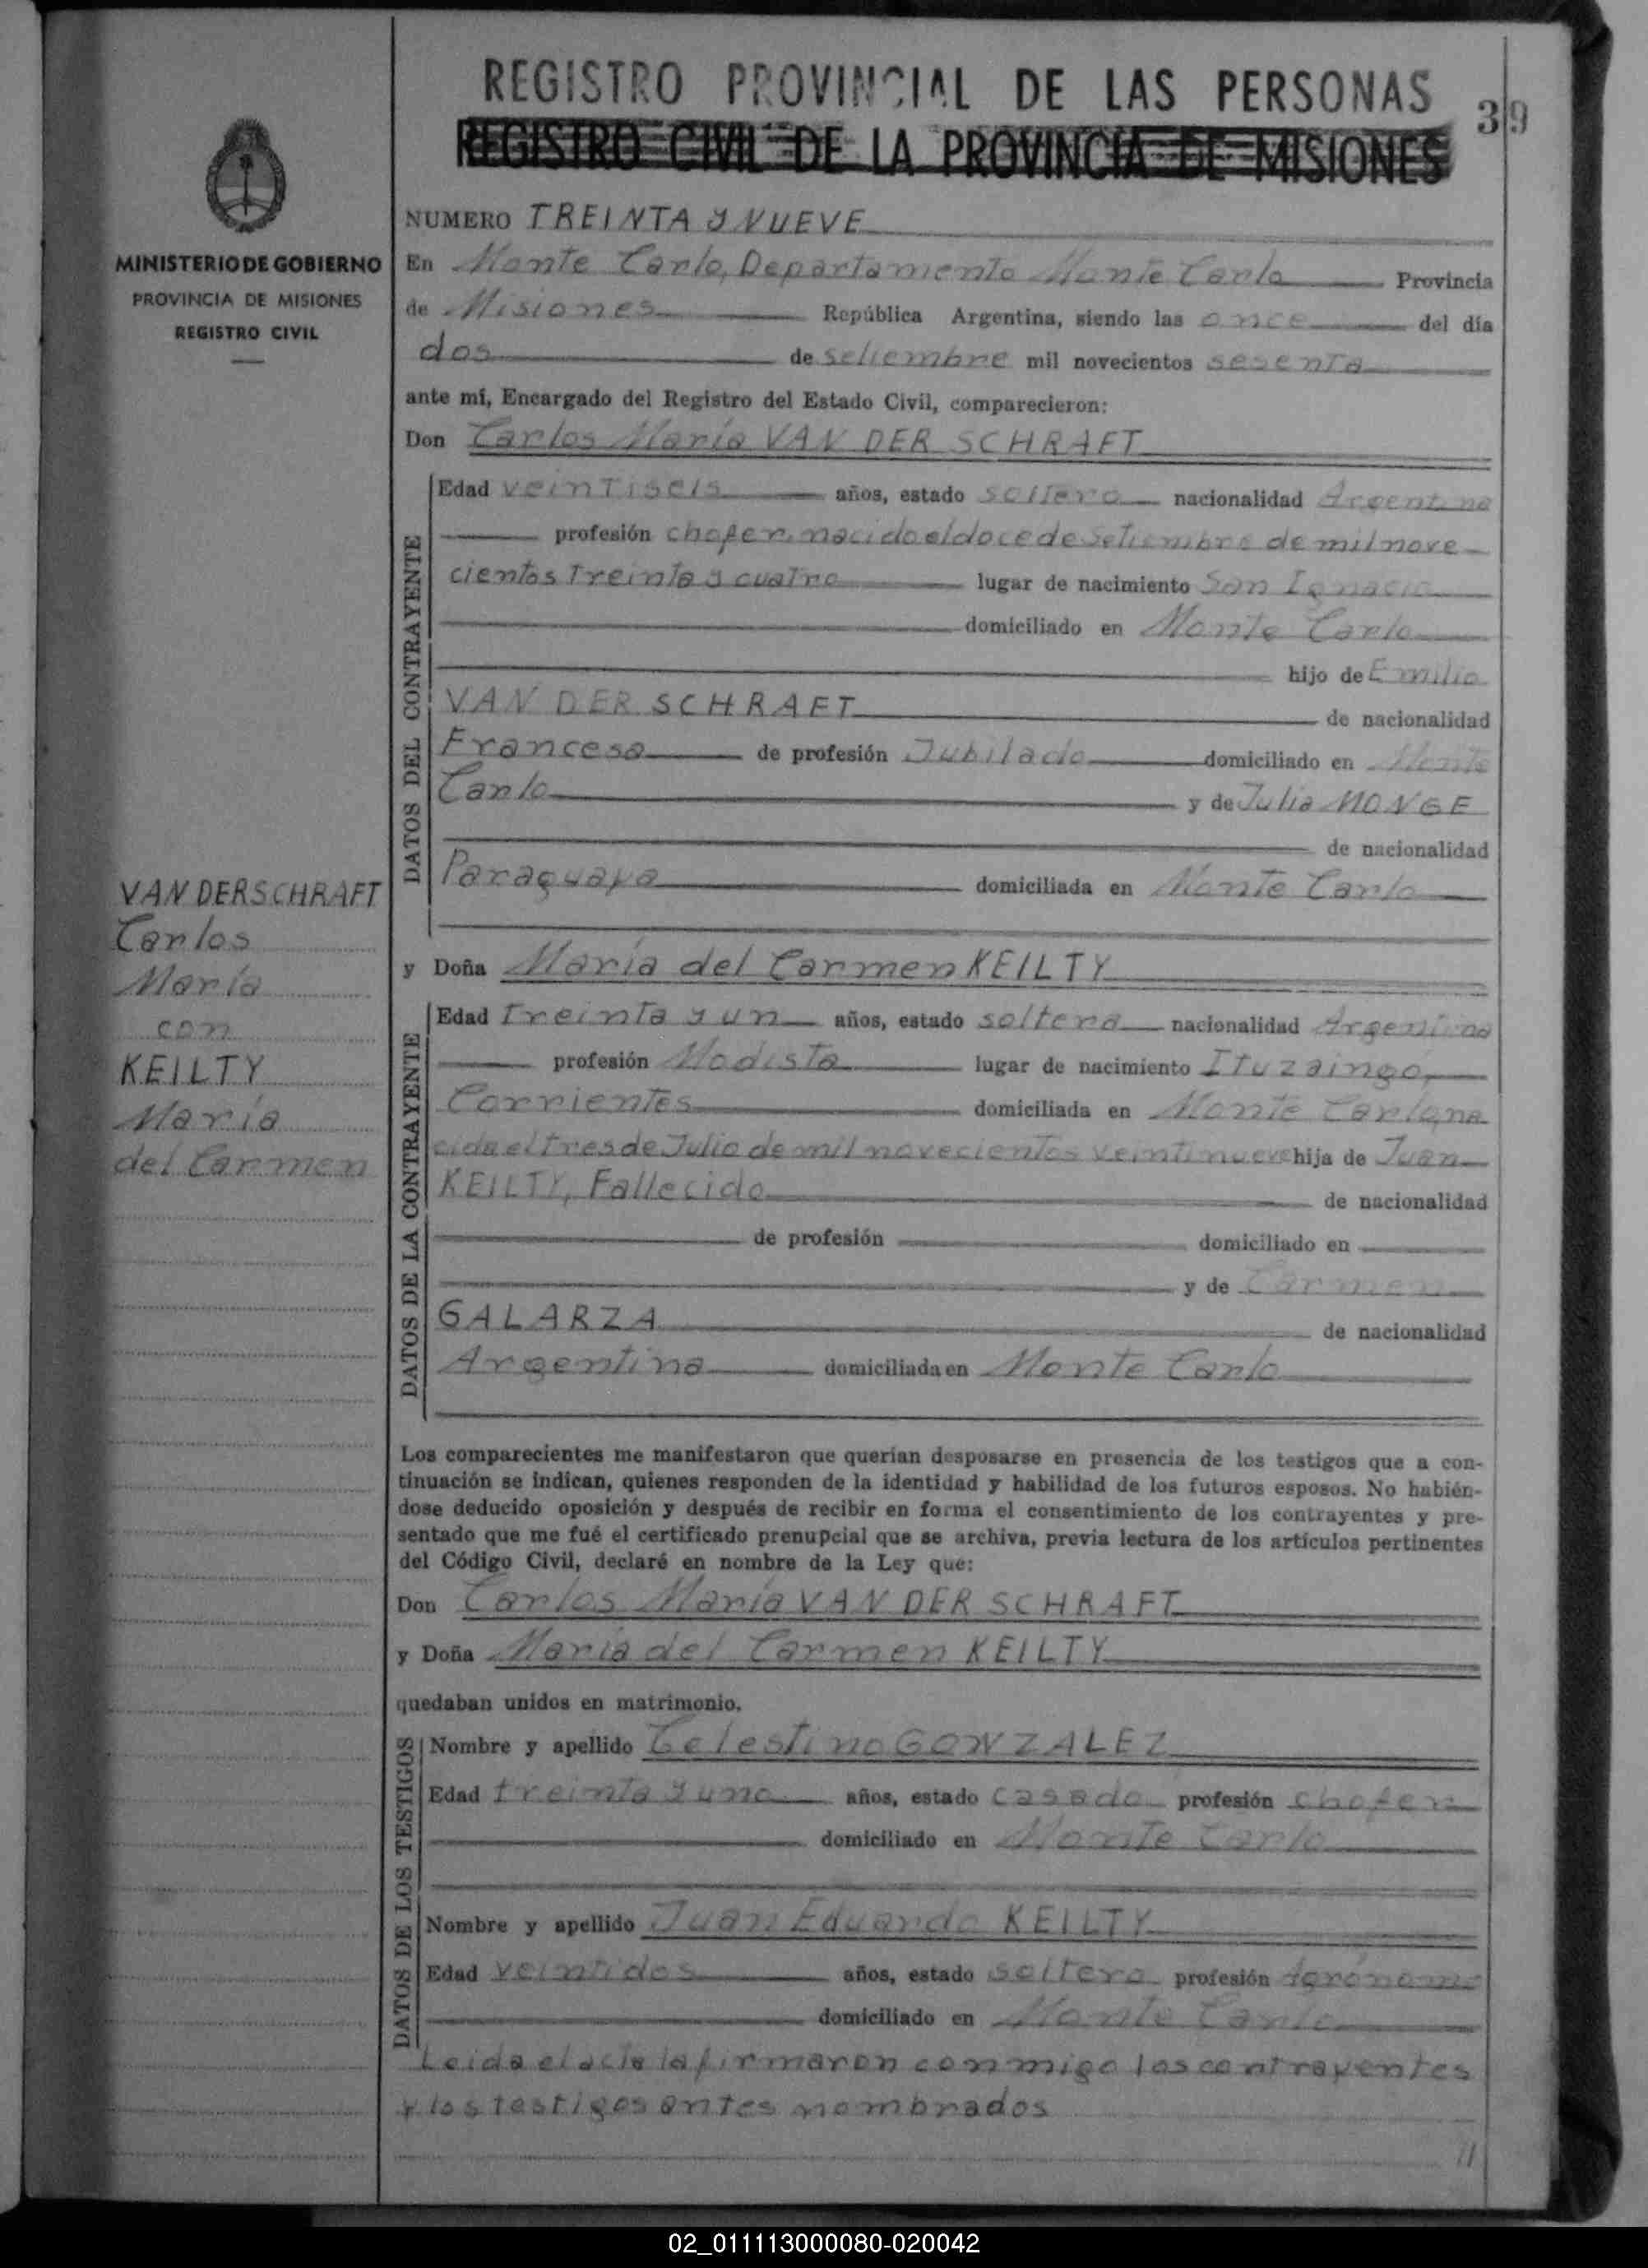 REGISTRO PROVINCIAL DE LAS PERSONAS
39
REGISTRO CIVIL DE LA PROVINCIA DE MISIONES
MINISTERIO DE GOBIERNO
PROVINCIA DE MISIONES
REGISTRO CIVIL
NUMERO TREINTA Y NUEVE
En Monte Carlo, Departamento Monte Carlo Provincia
de Misiones República Argentina, siendo las once del día
dos de setiembre mil novecientos sesenta
ante mí, Encargado del Registro del Estado Civil, comparecieron:
Don Carlos María VAN DER SCHRAFT
DATOS DEL CONTRAYENTE
Edad veintiseis años, estado soltero nacionalidad Argentina
profesión chofer, nacido el doce de Setiembre de mil nove-
cientos Treinta y cuatro lugar de nacimiento San Ignacio
domiciliado en Monte Carlo
hijo de Emilio
VAN DER SCHRAFT de nacionalidad
Francesa de profesión Jubilado domiciliado en Monte
Carlo y de Julia MONGE
de nacionalidad
Paraguaya domiciliada en Monte Carlo
VAN DER SCHRAFT
Carlos
María
con
KEILTY
María
del Carmen
y Doña María del Carmen KEILTY
DATOS DE LA CONTRAYENTE
Edad Treinta y un años, estado soltera nacionalidad Argentina
profesión Modista lugar de nacimiento Ituzaingo,
Corrientes domiciliada en Monte Carlo, na
cida el tres de Julio de mil novecientos veintinueve hija de Juan
KEILTY, Fallecido de nacionalidad
de profesión domiciliado en
y de Carmen
GALARZA de nacionalidad
Argentina domiciliada en Monte Carlo
Los comparecientes me manifestaron que querían desposarse en presencia de los testigos que a con-
tinuación se indican, quienes responden de la identidad y habilidad de los futuros esposos. No habién-
dose deducido oposición y después de recibir en forma el consentimiento de los contrayentes y pre-
sentado que me fué el certificado prenupcial que se archiva, previa lectura de los artículos pertinentes
del Código Civil, declaré en nombre de la Ley que:
Don Carlos María VAN DER SCHRAFT
y Doña María del Carmen KEILTY
quedaban unidos en matrimonio.
DATOS DE LOS TESTIGOS
Nombre y apellido Celestino GONZALEZ
Edad treinta y uno años, estado casado profesión chofer
domiciliado en Monte Carlo
Nombre y apellido Juan Eduardo KEILTY
Edad veintidos años, estado soltero profesión Agrónomo
domiciliado en Monte Carlo
Leida el acta la firmaron conmigo los contrayentes
y los testigos antes nombrados
//
02_011113000080-020042